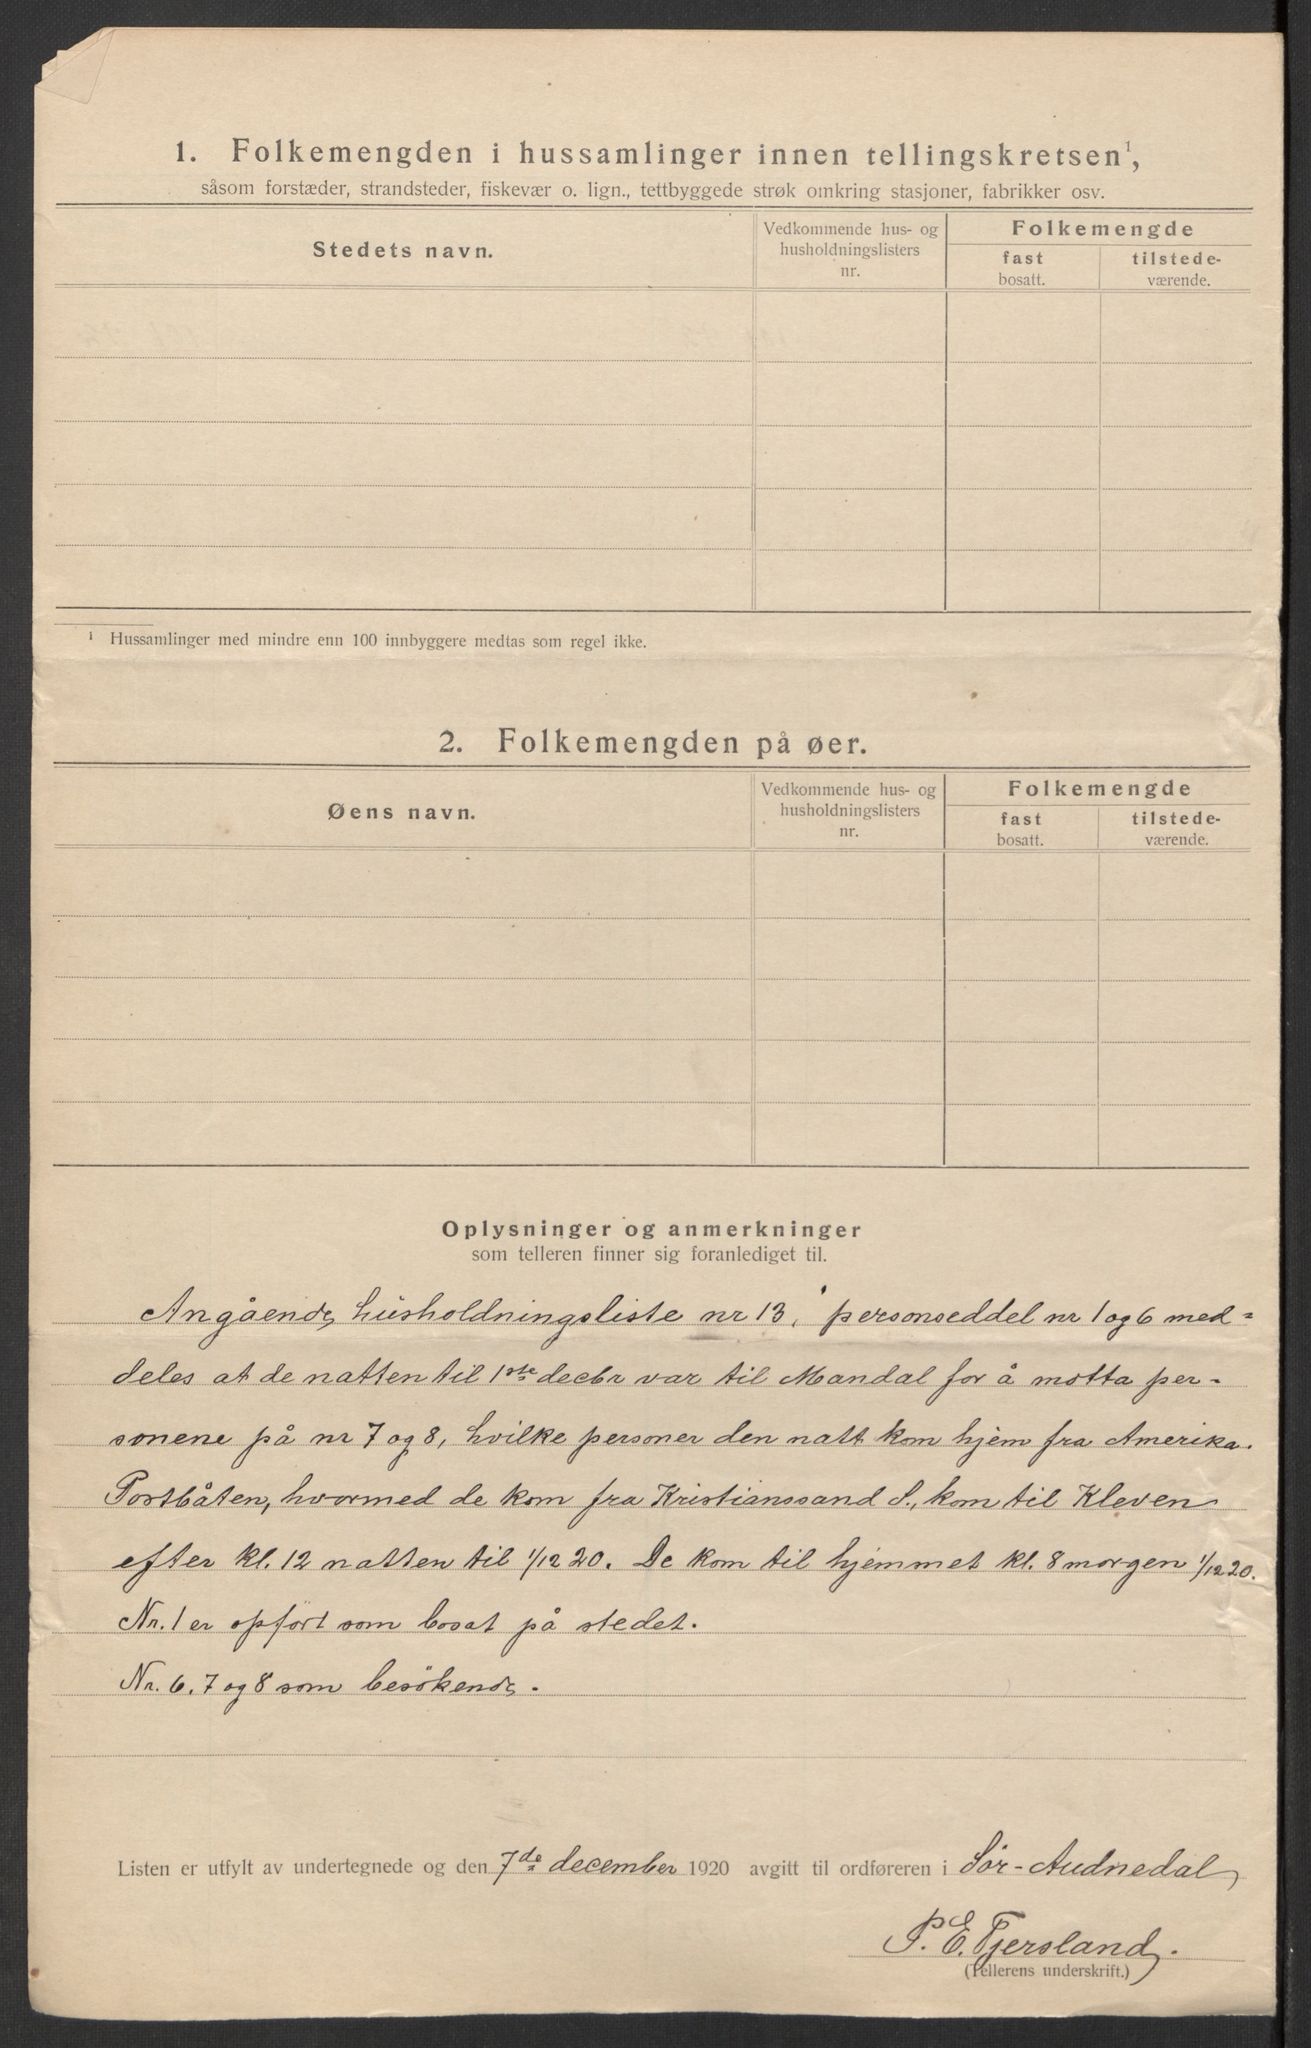 1. Folkemengden i hussamlinger innen tellingskretsen¹,
såsom forstæder, strandsteder, fiskevær o. lign., tettbyggede strøk omkring stasjoner, fabrikker osv.
Stedets navn.
Vedkommende hus- og
husholdningslisters
nr.
Folkemengde
fast
bosatt.
tilstede-
værende.
¹ Hussamlinger med mindre enn 100 innbyggere medtas som regel ikke.
2. Folkemengden på øer.
Øens navn.
Vedkommende hus- og
husholdningslisters
nr.
Folkemengde
fast
bosatt.
tilstede-
værende.
Oplysninger og anmerkninger
som telleren finner sig foranlediget til.
Angående husholdningsliste nr 13, personseddel nr 1 og 6 med=
deles at de natten til 1ste decbr var til Mandal for å motta per-
sonene på nr 7 og 8, hvilke personer den natt kom hjem fra Amerika.
Postbåten, hvormed de kom fra Kristianssand S., kom til Kleven
efter kl. 12 natten til 1/12 20. De kom til hjemmet kl. 8 morgen 1/12 20.
Nr. 1 er opført som bosat på stedet.
Nr. 6, 7 og 8 som besökende.
Listen er utfylt av undertegnede og den 7de december 1920 avgitt til ordføreren i Sör-Audnedal
P. E. Tjersland.
(Tellerens underskrift.)